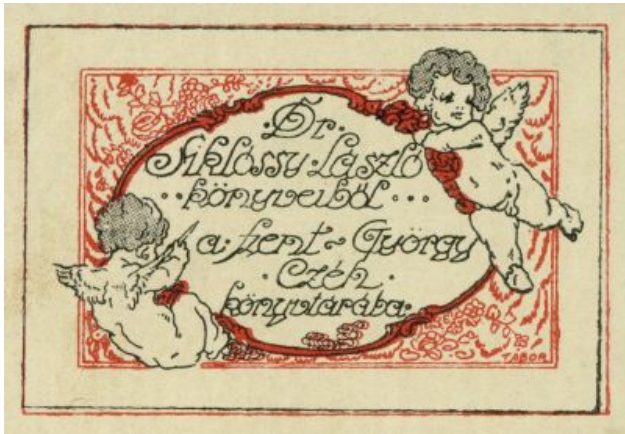 ·Dr.·
Siklóssy·László
··könyveiből···
a·Szent-György
·Czéh·
könyvtarába·
TÁBOR